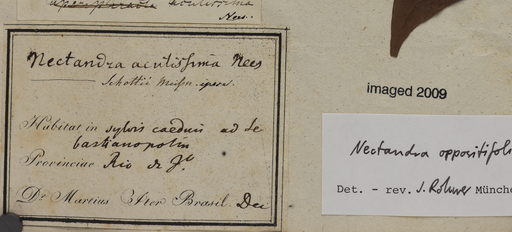 acutissima
Nees.
Nectandra acutissima Nees
Schottii Meissn.
Habitat in sylvis caeduis ad Se
bastianopolin
Provinciae Rio de J.
Dr Martius Iter Brasil. Dec
imaged 2009
Nectandra oppositifoli
Det. - rev. J. Rohwer Münche